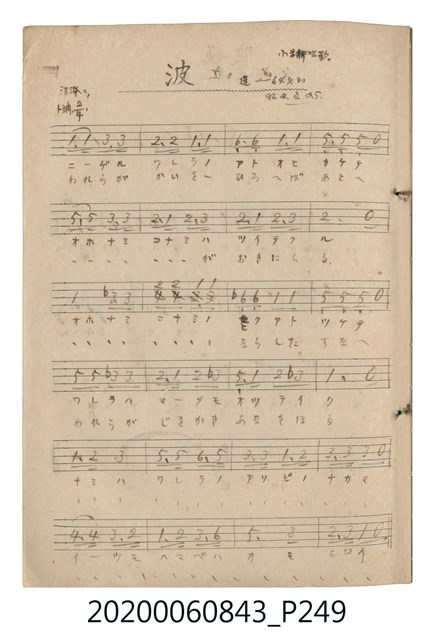 小学新唱歌
波
活溌ニ
ト調 2/4
1.1 3.3 2.2 1.1 6.6 1.1 5.5 5 0
ニーゲル ワレラノ アトオヒ カケテ
われらが かいを ひろへば あとへ
5.5 3.3 2.1 2.3 2.1 2.3 2. 0
オホナミ コナミハ ツイテクル
、、、、 、、、が おきにくる
1 b3 3 2 2 1 1 b6 6 1 1 5 5 5 0
オホナミ コナミノ クアト ツケテ
、、、、 、、、、 ならした すなへ
5 5 b3 3 2.1 2 b3 5.1 2 b3 1. 0
ワレラハ マータモ オツテイク
われらが じをかき あなをほる
1.2 3 5.5 6.5 3.3 1.2 3.3 3 0
ナミハ ワレラノ アソビノ ナカマ
4.4 3.2 1.2 3.6 5. 3 2.3 1 0
イーツモ ハマベハ オモシロイ
20200060843_P249